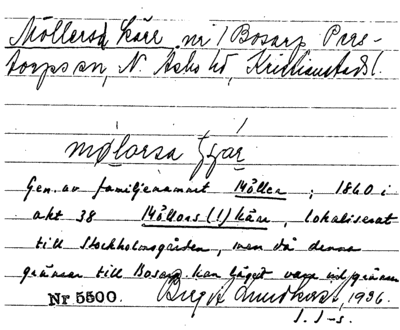 Möllersa kärr nr 1 Bosarp Pers-
torps sn, N. Åsbo hd, Kristianstads l.
mølarsa
Gen. av familjenamnet Möller; 1860 i
akt 38 Möllors (1) kärr, lokaliserat
till Stockholmsgården, men då denna
gränsar till Bosarp kan läget vara vid gränsen
Nr 5500. Birgit 1936.